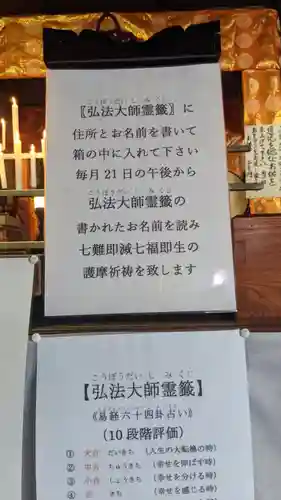 こうぼうだいしみくじ
〖弘法大師霊籤〗に
住所とお名前を書いて
箱の中に入れて下さい
毎月21日の午後から
こうぼうだいしみくじ
弘法大師霊籤の
書かれたお名前を読み
七難即滅七福即生の
護摩祈祷を致します
こうぼうだいしみくじ
【弘法大師霊籤】
《易経六十四卦占い》
(10段階評価)
① 大吉 だいきち (人生の大転機の時)
② 中吉 ちゅうきち (幸せを伸ばす時)
③ 小吉 しょうきち (幸せを分ける時)
④ 吉 きち (幸せを感じる時)